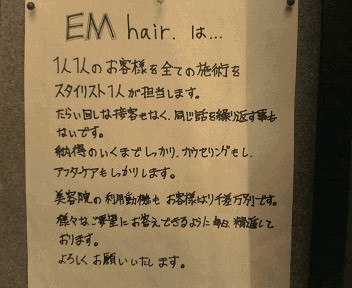 EM hair. は...
1人1人のお客様を全ての施術を
スタイリスト1人が担当します。
たらい回しな接客もなく、同じ話を繰り返す事も
ないです。
納得のいくまでしっかり、カウセリングもし、
アフターケアもしっかりします。
美容院の利用動機も お客様により千差万別です。
様々なご要望にお答えできるように毎日 精進して
おります。
よろしくお願いいたします。